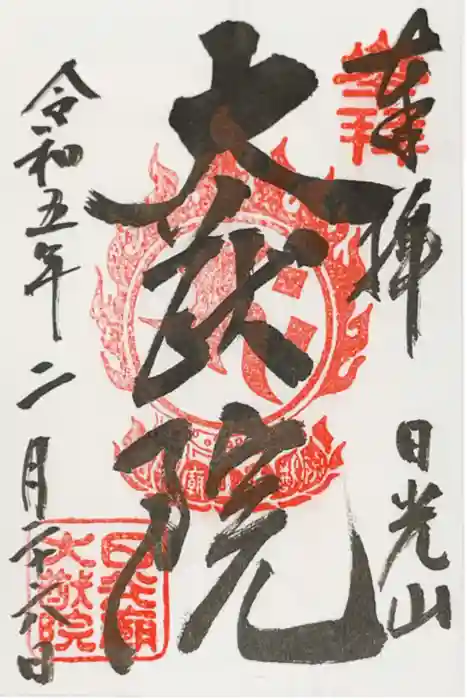 奉拝
日光山
大猷院
令和五年二月二十六日
日光廟
大猷院